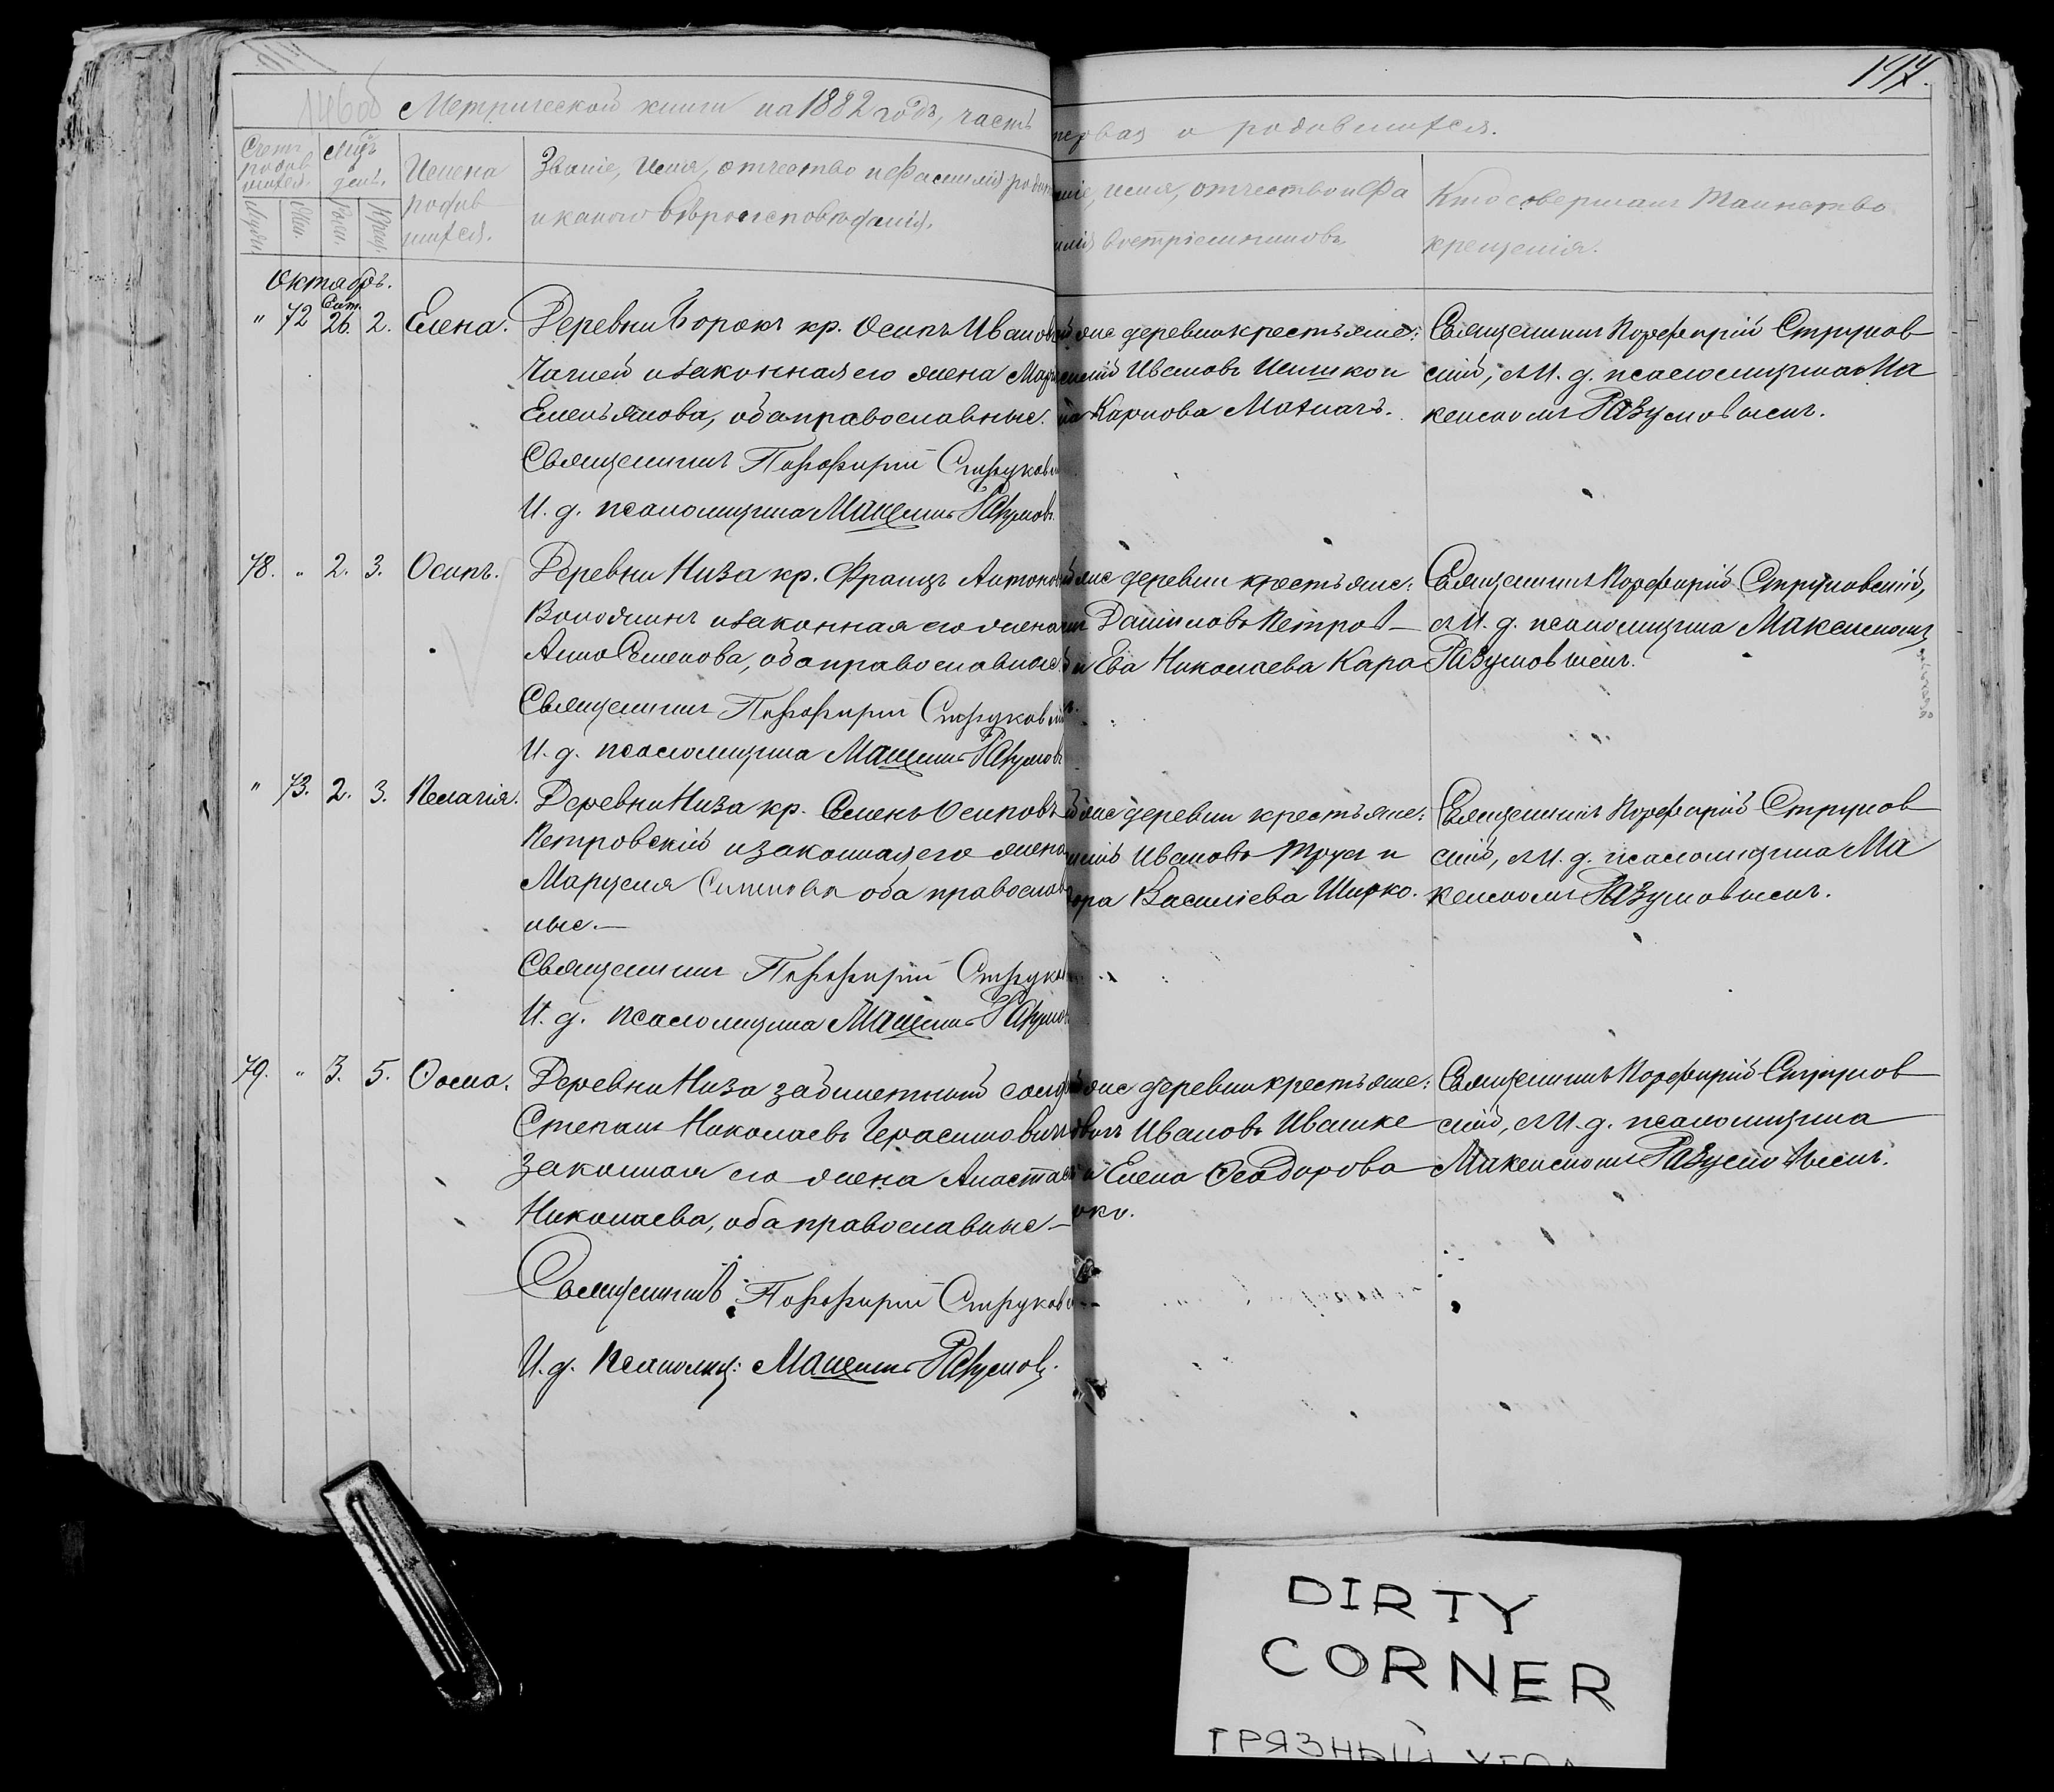 147.
146об Метрической книги на 1882 годъ, часть первая о родившихся.
Счетъ родив шихся. Мѣц. и день. Имена родив шихся. Званіе, Имя, отчество и Фамилія родит
и какого вѣроисповѣданія.
Муж. Жен. Рожд. Крещ.
ніе, имя, отчество и Фа
милія воспріемниковъ.
Кто совершалъ Таинство
крещенія.
Октябрь.
" 72 Сент. 26. 2. Елена. Деревни Борокъ кр. Осипъ Ивановъ
и законная его жена Мар
Емельянова, оба православные.
Священникъ Порфирій Струковс
И. д. псаломщика Максимъ Разумов.
той же деревни крестьяне:
Ивановъ и
Карпова
Священникъ Порфирій Струков
скій, съ И. д. псаломщика Ма
ксимомъ Разумовичемъ.
78. " 2. 3. Осипъ. Деревни Низа кр. Францъ Антонов
и законная его жена
Анна Семенова, оба православные
Священникъ Порфирій Струковскі
И. д. псаломщика Максимъ Разумов
той же деревни крестьяне:
Даниловъ Петров
и Ева Николаева Кара
Священникъ Порфирій Струковскій,
съ И. д. псаломщика Максимомъ
Разумовичемъ.
" 73. 2. 3. Пелагія. Деревни Низа кр. Семенъ Осиповъ
Петровскій и законная его жена
Марцеля оба православ
ные.—
Священникъ Порфирій Струков
И. д. псаломщика Максимъ Разумов
той же деревни крестьяне:
Ивановъ Трус и
Васильева Ширко.
Священникъ Порфирій Струков
скій, съ И. д. псаломщика Ма
ксимомъ Разумовичемъ.
79. " 3. 5. Ѳома. Деревни Низа забилетный солд
Степанъ Николаевъ Герасимовичъ
законная его жена Анастас
Николаева, оба православные.—
Священникъ Порфирій Струковс
И. д. Псаломщ: Максимъ Разумов.
той же деревни крестьяне:
Ивановъ Ивашке
и Елена Ѳеодорова
око.
Священникъ Порфирій Струков
скій, съ И. д. псаломщика
Максимомъ Разумовичемъ.
DIRTY
CORNER
ГРЯЗНЫЙ УГОЛ